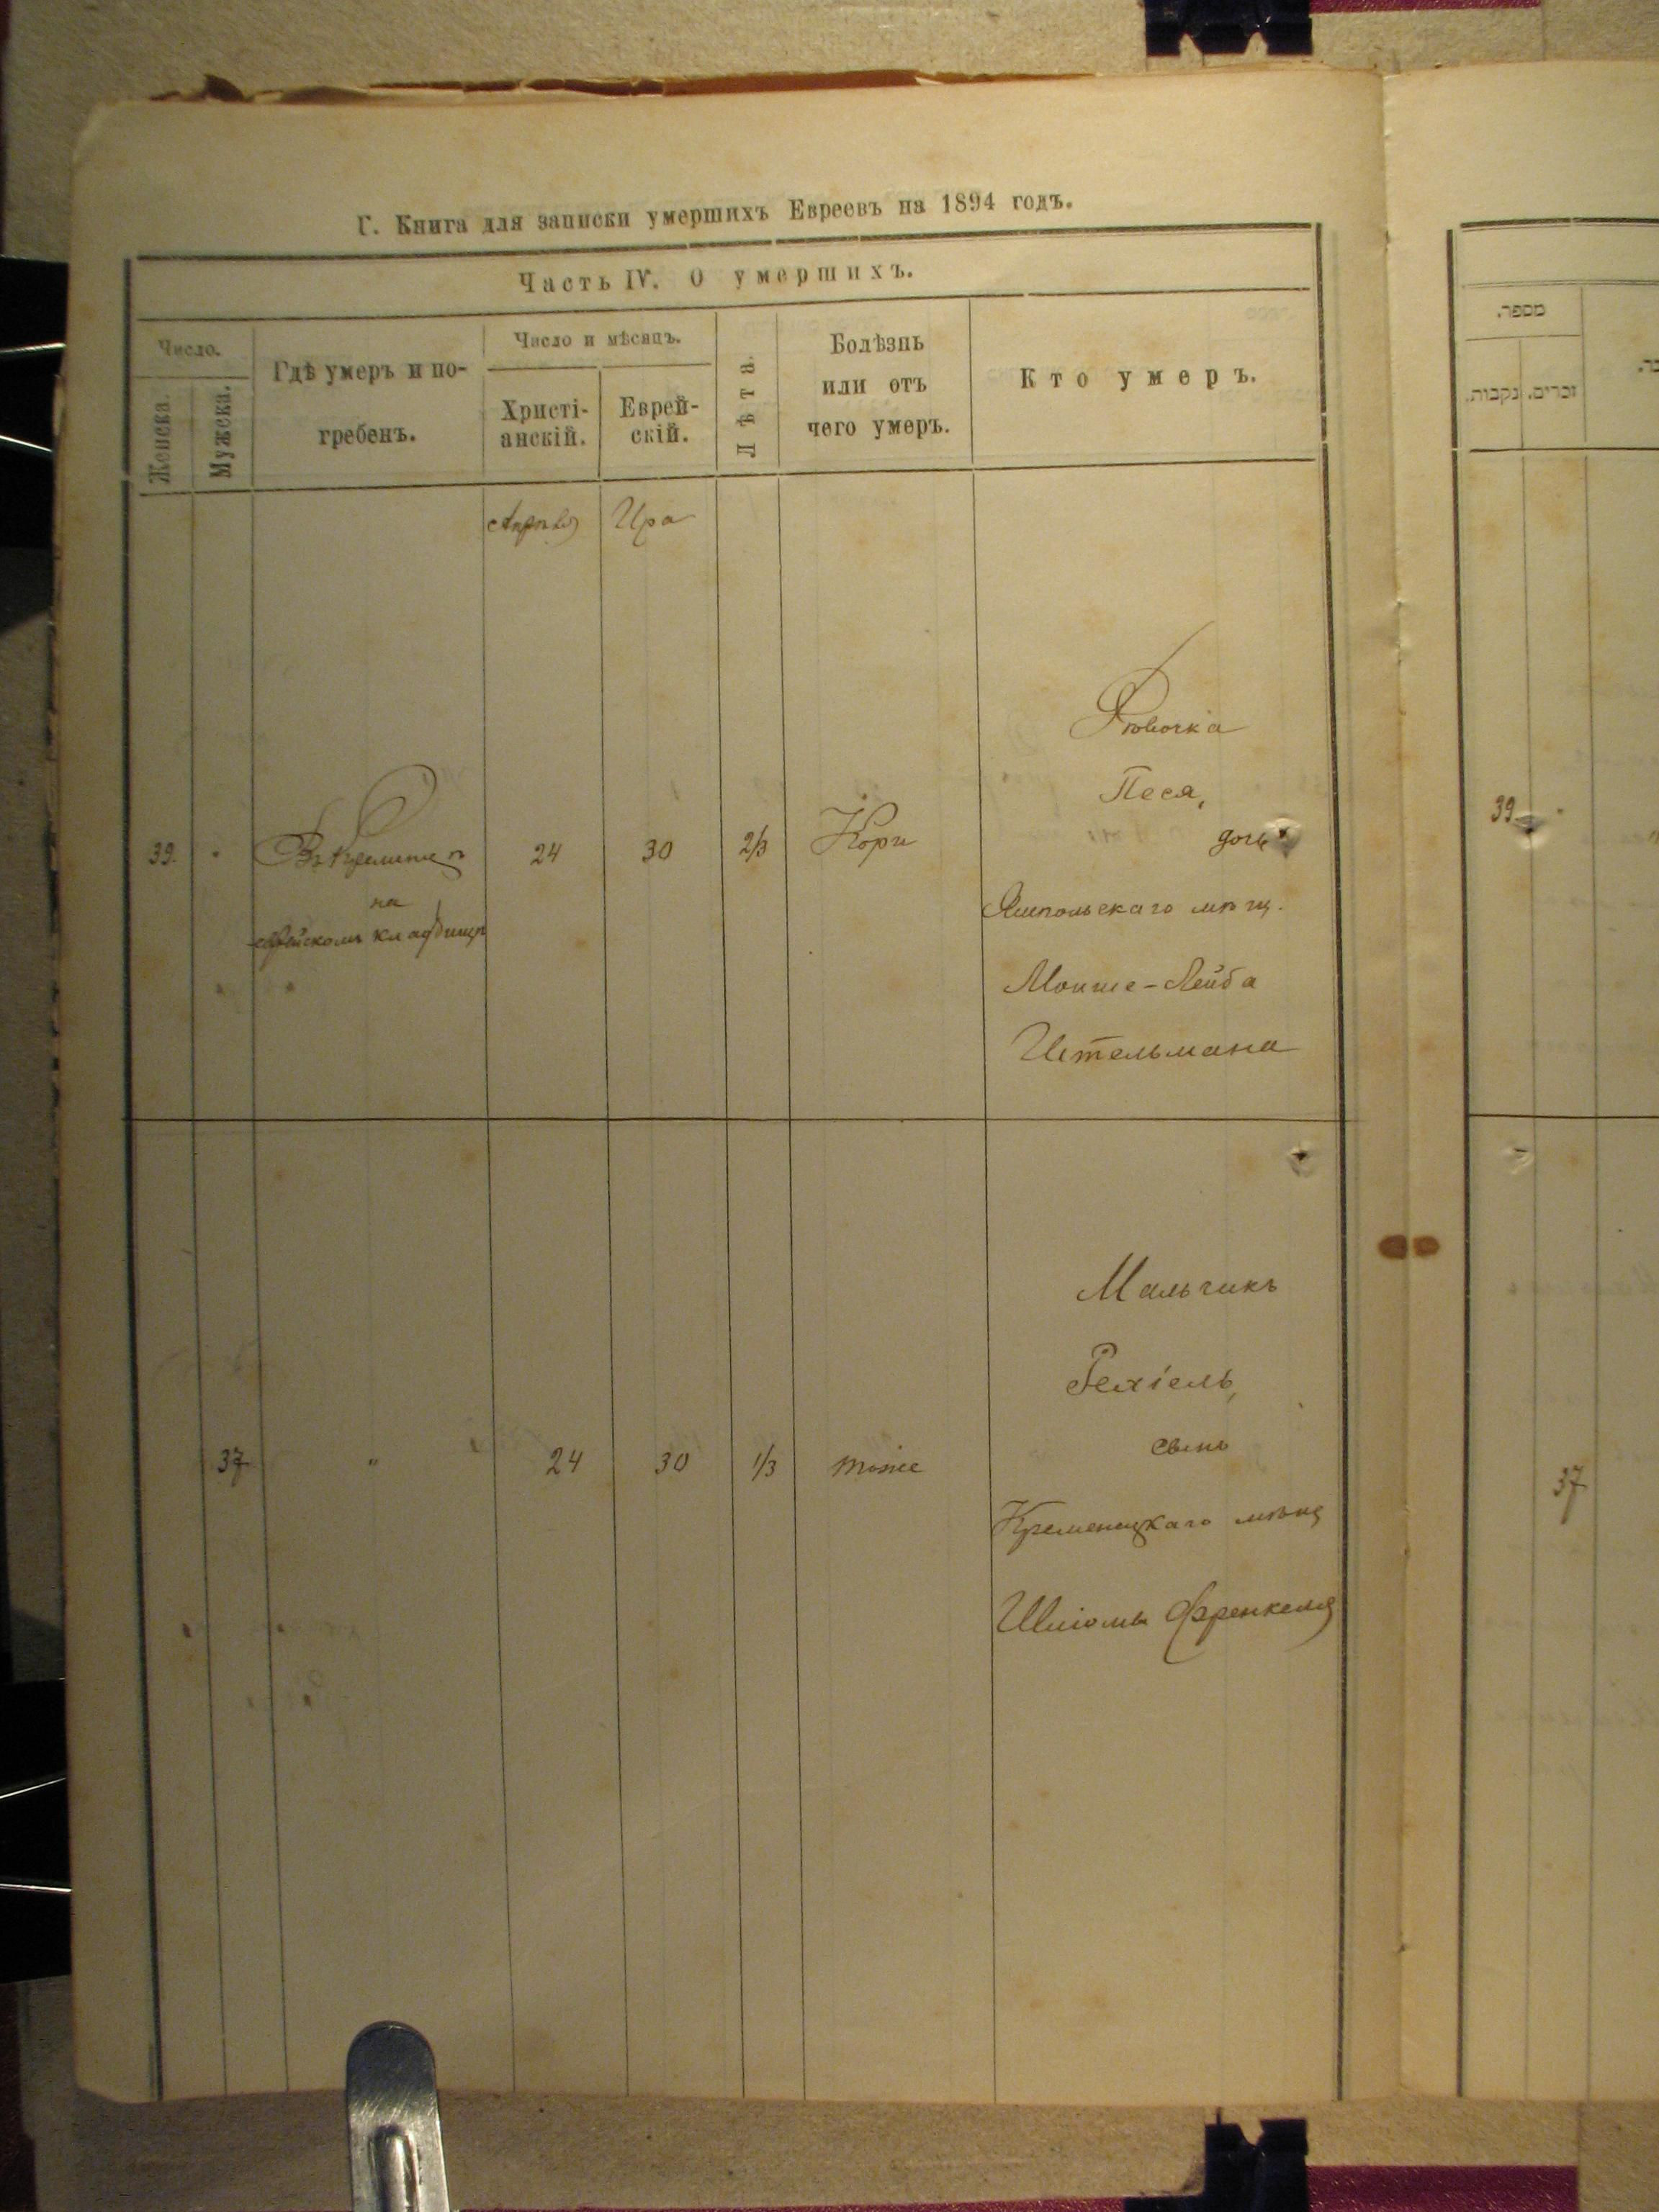 Г. Книга для записки умершихъ Евреевъ на 1894 годъ.
Часть IV. О умершихъ.
Число.
Женска.
Мужска.
Гдѣ умеръ и по-
гребенъ.
Число и мѣсяцъ.
Христі-
анскій.
Еврей-
скій.
Лѣта.
Болѣзнь
или отъ
чего умеръ.
Кто умеръ.
Апрѣля
Ира
39
Въ Кременцѣ
на
еврейскомъ кладбищѣ
24
30
2/3
Кори
Дѣвочка
Песя,
дочь
Ямпольскаго мѣщ.
Мошше-Лейба
37
"
24
30
1/3
тоже
Мальчикъ
сынъ
Кременецкаго мѣщ
Шліомы Френкеля
מספר.
זכרים.
נקבות.
39
37